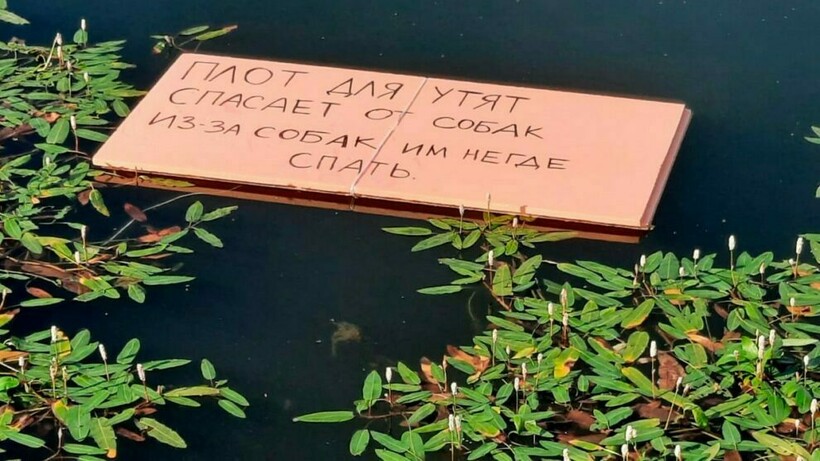 ПЛОТ ДЛЯ УТЯТ
СПАСАЕТ ОТ СОБАК
ИЗ-ЗА СОБАК ИМ НЕГДЕ
СПАТЬ.